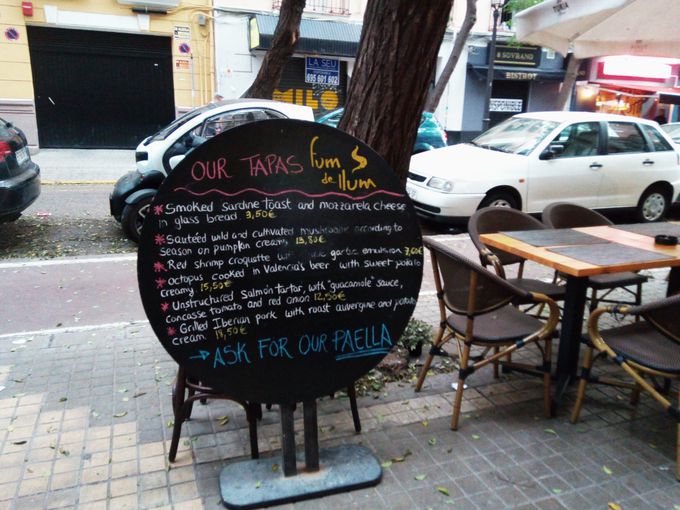 LA SEU
695 981 602
MILO
SOVRAND
BISTROT
DISPONIBLE
OUR TAPAS
fum de llum
* Smoked sardine toast and mozzarela cheese
in glass bread. 3,50€
* Sautéed wild and cultivated mushrooms according to
season on pumpkin creamy. 13,80€
* Red shrimp croquette with garlic emulsion 7,60€
* octopus cooked in Valencia's beer with sweet potato
creamy. 15,50€
* Unstructured Salmon tartar, with "guacamole" sauce,
Concasse tomato and red onion 12,50€
* Grilled Iberian pork with roast aubergine and potato
cream.
→ ASK FOR OUR PAELLA